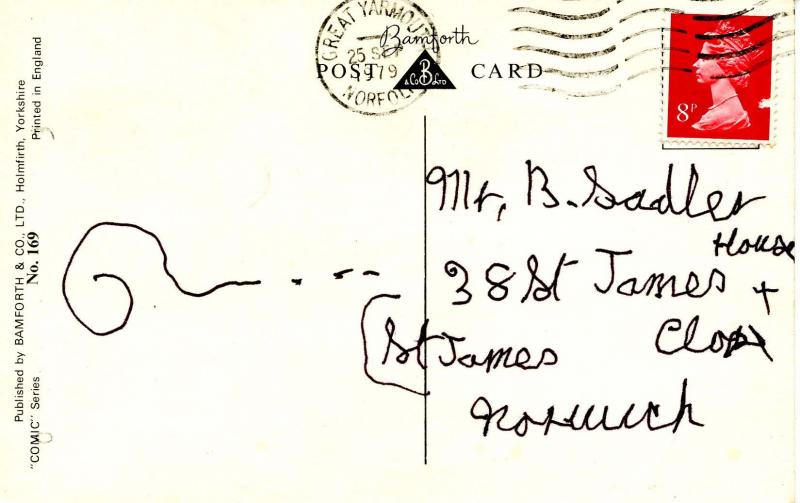 GREAT YARMOUTH
25 SEP
1979
NORFOLK
Bamforth
POST CARD
B
& Co LTD
8P
Published by BAMFORTH & CO., LTD., Holmfirth, Yorkshire
Printed in England
"COMIC" Series
No. 169
Mr, B. Sadler
House
38 St James +
St James Close
Norwich